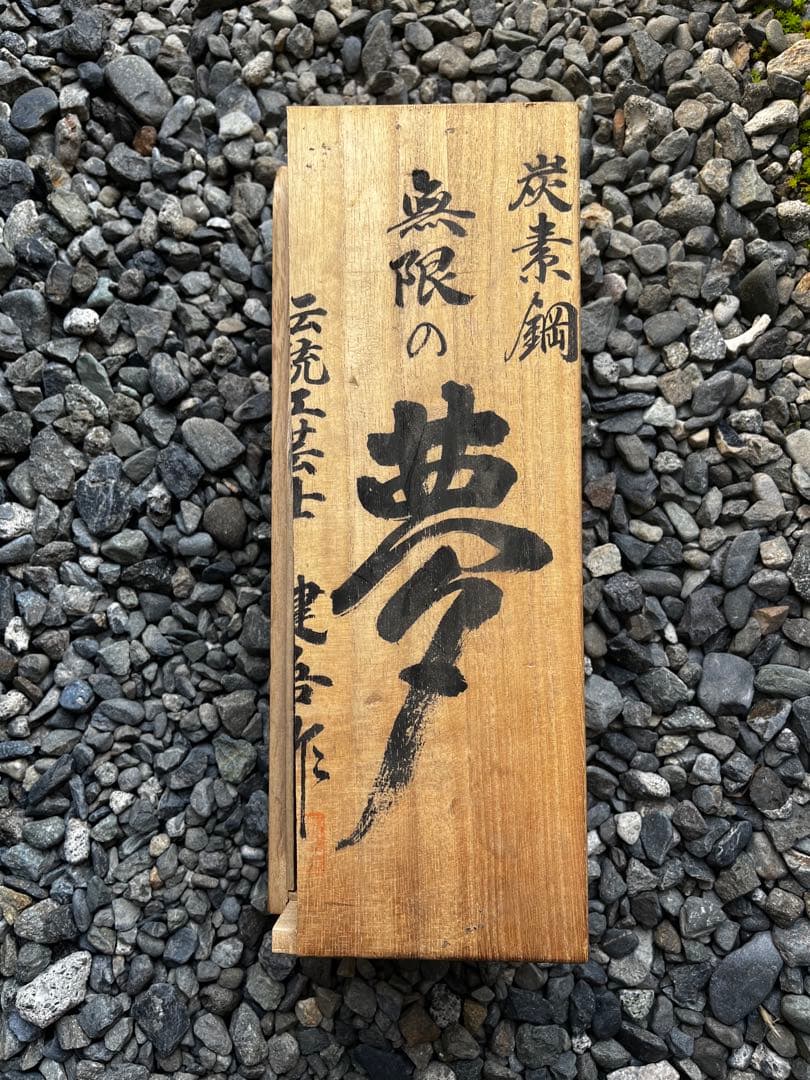 炭素鋼
無限の
夢
伝統工芸士 建吾作